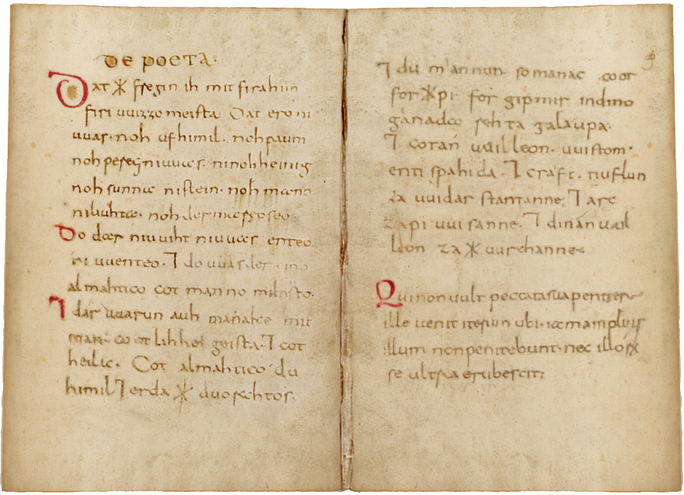 DE POETA.
Dat ᚼ fregin ih mit firahim
firi uuizzo meista. Dat ero ni
uuas. noh ufhimil. noh paum
noh pereg ni uuas. ninohheinig
noh sunna nistein. noh mano
niliuhta. noh der mareoseo.
Do dar niuuiht niuuas enteo
ni uuenteo. ⁊ do uuas der eino
almahtico cot manno miltisto.
⁊ dar uuarun auh manake mit
inan. cootlihhe geista. ⁊ cot
heilac. Cot almahtico du
himil ⁊ erda ᚼ uuorahtos.
⁊ du mannun so manac coot
for ᚼ pi. for gipmir indino
ganada rehta galaupa.
⁊ cotan uuilleon. uuistom.
enti spahida. ⁊ craft. tiuflun
za uuidar stantanne. ⁊ arc
za pi uuisanne. ⁊ dinan uuil
leon za ᚼ uurchanne.
Qui non uult peccata sua penitere
ille uenit iterum ubi. iam amplius
illum non penitebunt. nec illorum
se ultra erubescit.